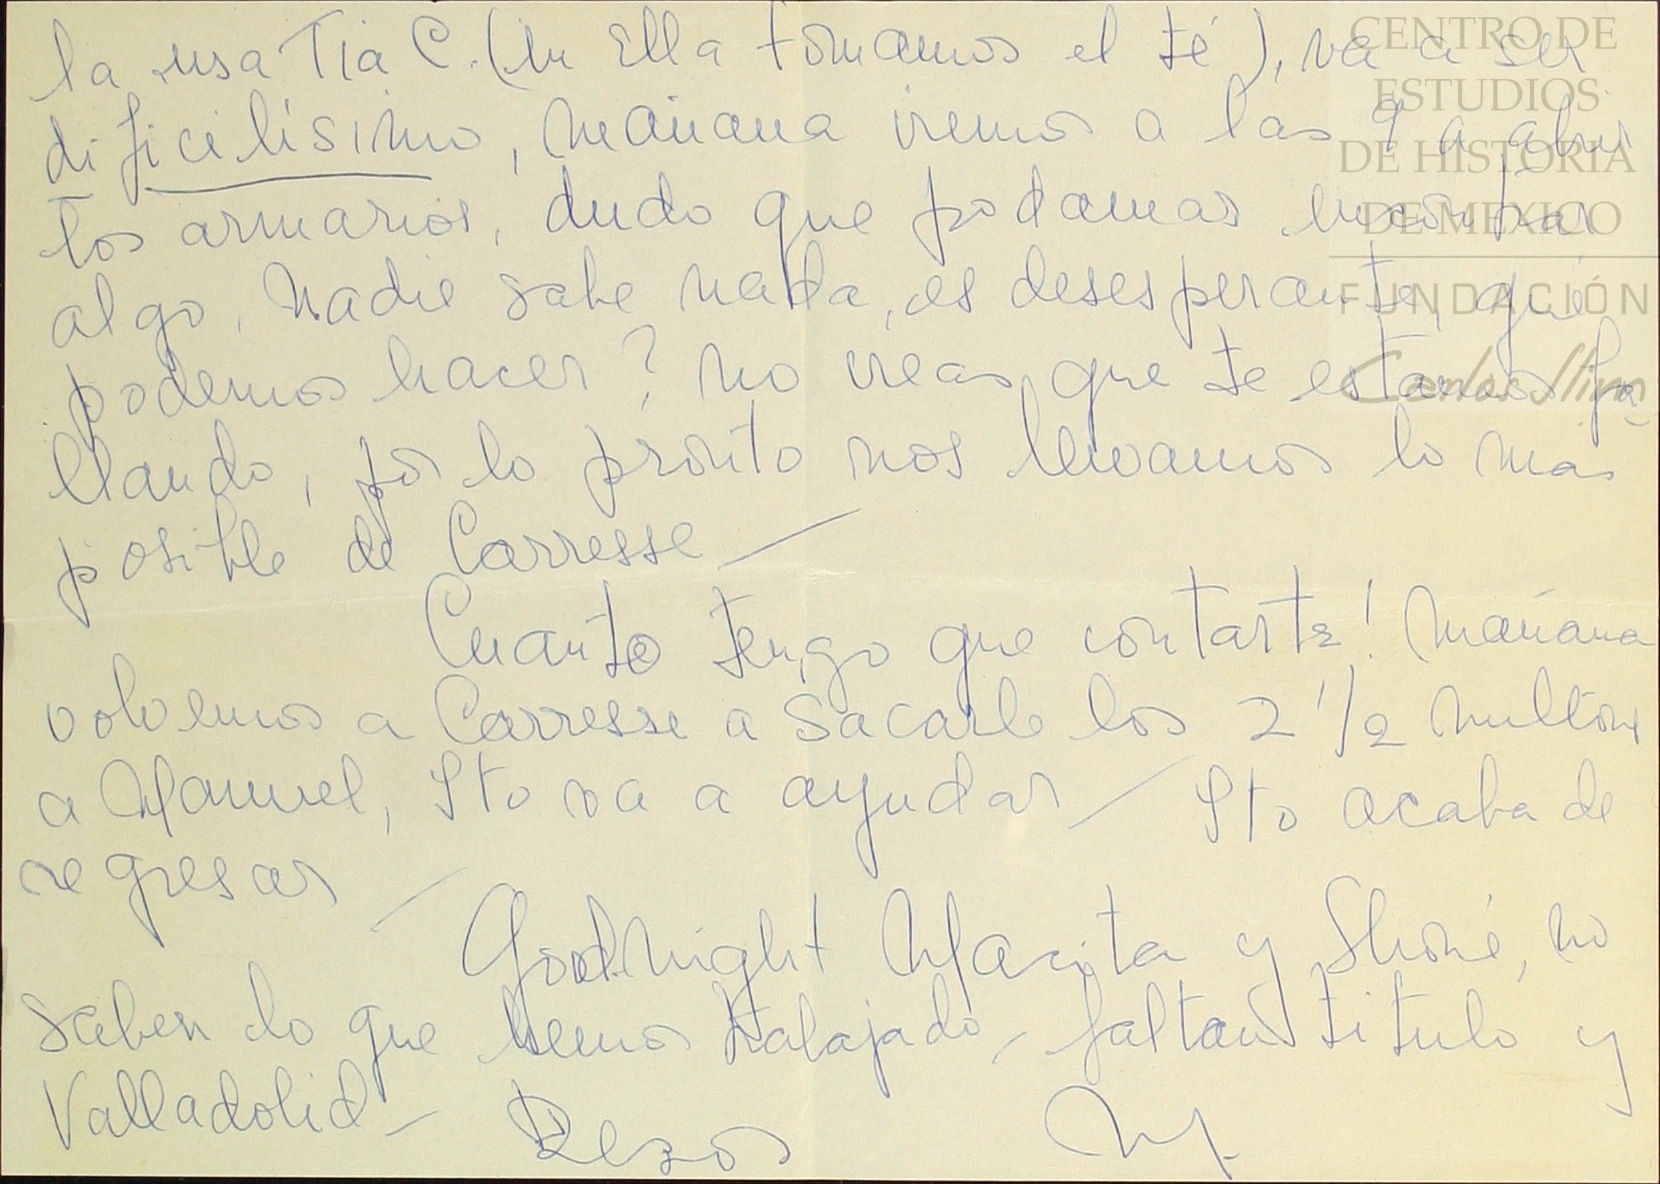 la usa Tia C. (en Ella tomamos el té), va a ser
dificilísimo, mañana iremos a las 9 a abrir
los armarios, dudo que podamos encontrar
algo, Nadie sabe nada, es desesperante, qué
podemos hacer? no creas que te estamos fa
llando, por lo pronto nos llevamos lo mas
posible de Carresse —
Cuanto tengo que contarte! Mañana
volvemos a Carresse a sacarle los 2 1/2 millones
a Manuel, Sto va a ayudar — Sto acaba de
regresar —
Good night Macita y Shoné, no
saben lo que hemos trabajado — faltan titulo y
Valladolid — Besos M.
CENTRO DE
ESTUDIOS
DE HISTORIA
DE MEXICO
FUNDACIÓN
Carlos Slim